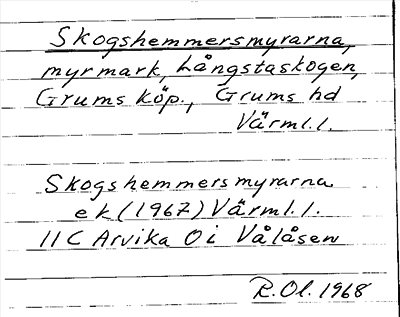 Skogshemmersmyrarna,
myrmark, Långstaskogen,
Grums köp., Grums hd
Värml.l.
Skogshemmersmyrarna
ek (1967) Värml.l.
11C Arvika O i Vålåsen
R.Ol. 1968